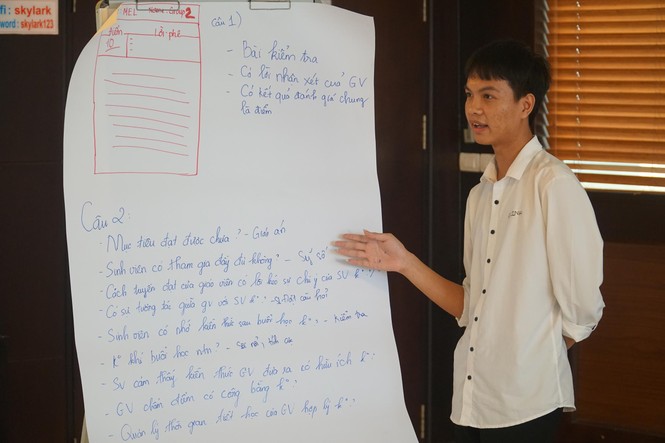 fi : skylark
word : skylark123
MEL Group 2
Điểm Lời phê
10
Câu 1)
- Bài kiểm tra
- Có lời nhận xét của GV
- Có kết quả đánh giá chung
là điểm
Câu 2:
- Mục tiêu đạt được chưa? - Giáo án
- Sinh viên có tham gia đầy đủ không? - Sĩ số
- Cách truyền đạt của giáo viên có lôi kéo sự chú ý của SV k°?
- Có sự tương tác giữa gv với SV k°? - Đặt câu hỏi
- Sinh viên có nhớ kiến thức sau buổi học k°? - Kiểm tra
- K° khí buổi học ntn? -
- SV cảm thấy kiến thức GV đưa ra có hữu ích k°?
- GV chấm điểm có công bằng k°?
- Quản lý thời gian tiết học của GV hợp lý k°?